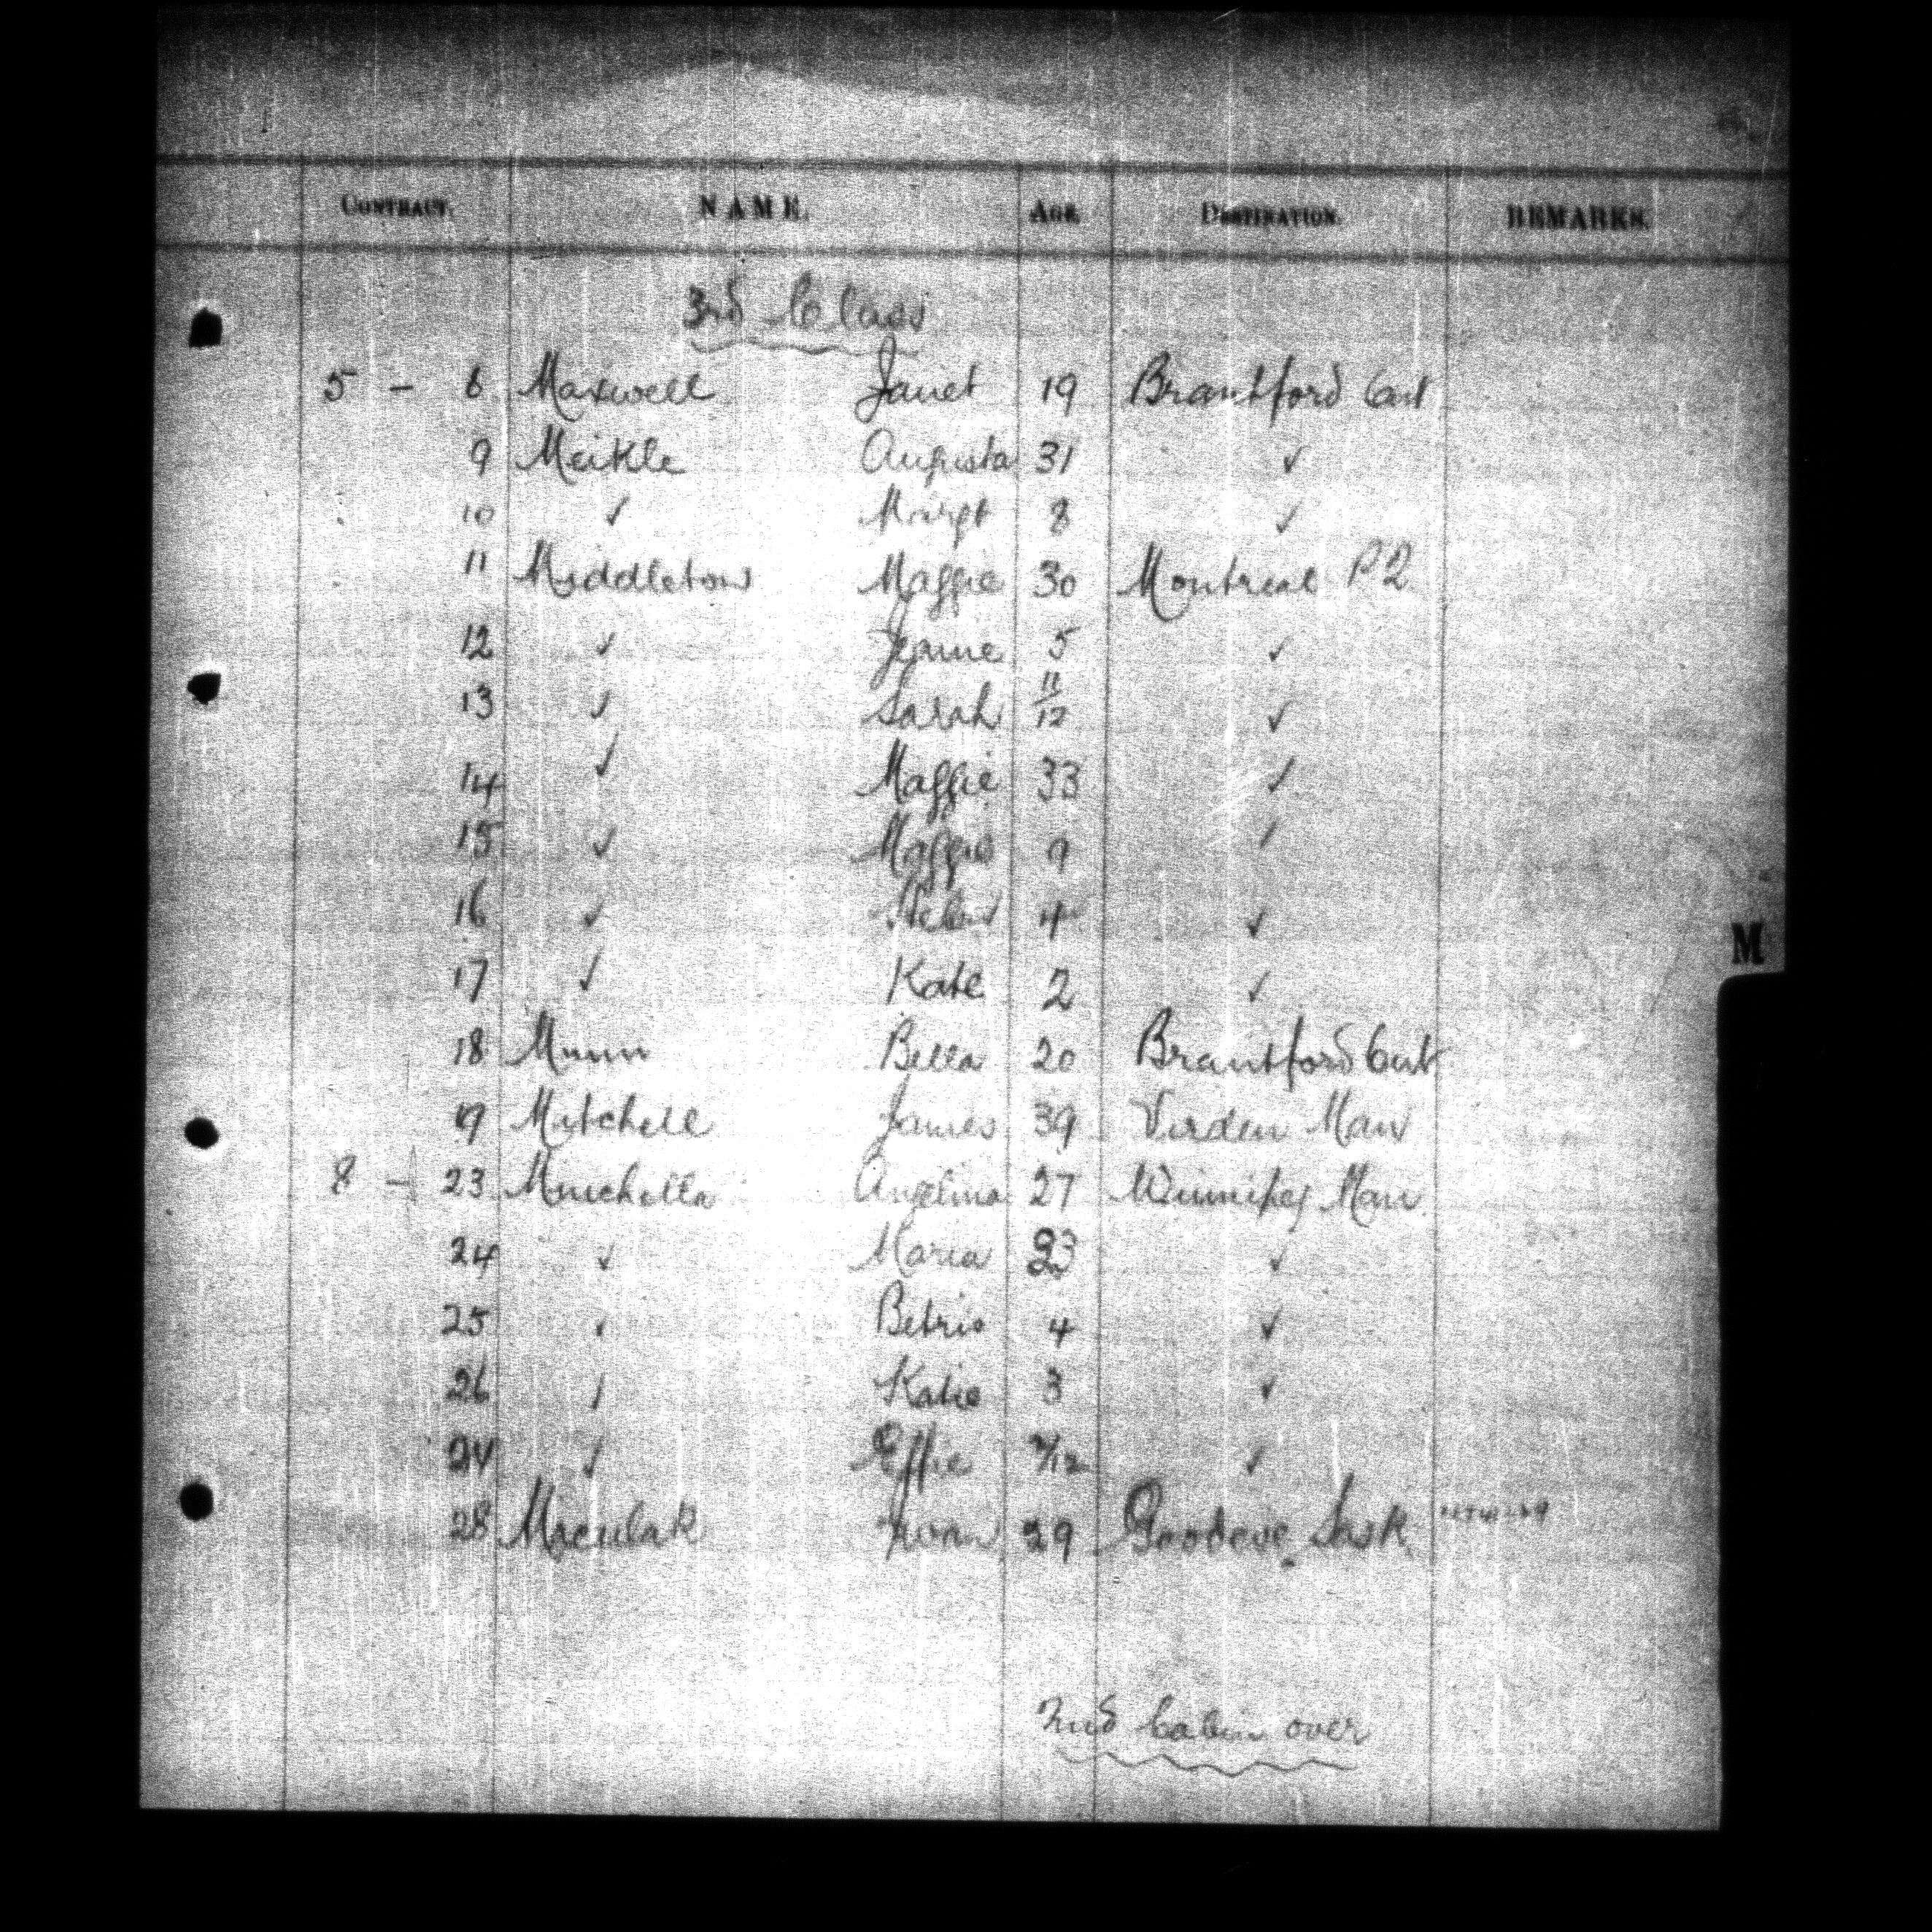 CONTRACT. NAME. AGE. DESTINATION. REMARKS.
3rd Class
5 - 6 Maxwell Janet 19 Brantford Ont
9 Meikle Augusta 31 ✓
10 ✓ Margt 8 ✓
11 Middleton Maggie 30 Montreal PQ
12 ✓ Jeanie 5 ✓
13 ✓ Sarah 11/12 ✓
14 ✓ Maggie 33 ✓
15 ✓ Maggie 9 ✓
16 ✓ Helen 4 ✓
M
17 ✓ Kate 2 ✓
18 Munn Bella 20 Brantford Ont
19 Mitchell James 39 Virden Man
8 - 23 Muichella Angelina 27 Winnipeg Man
24 ✓ Maria 23 ✓
25 ✓ Betris 4 ✓
26 ✓ Katie 3 ✓
✓ Effie ✓
28 Maculak Iwan 29 Goodeve Sask
2nd Cabin over